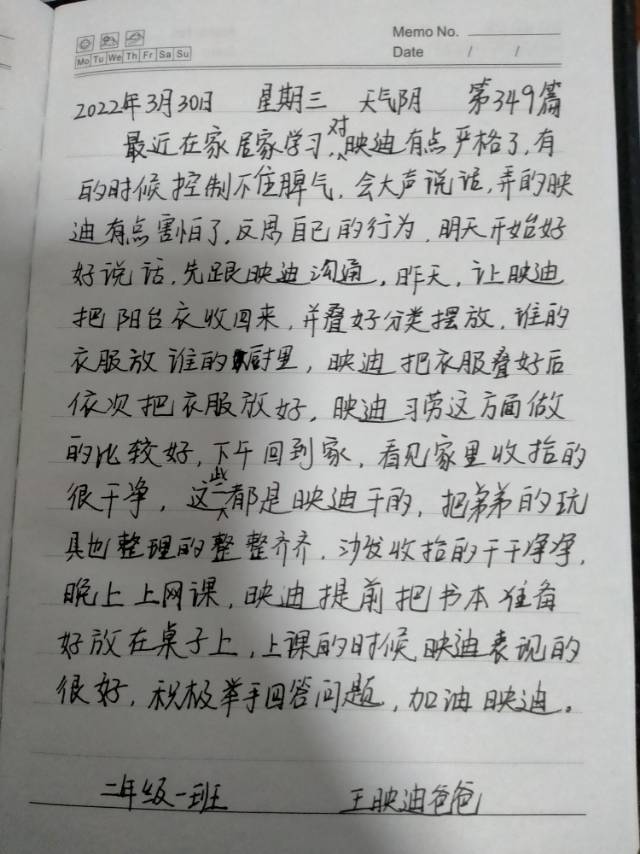 Memo No.
Mo Tu We Th Fr Sa Su
Date / /
2022年3月30日 星期三 天气阴 第349篇
最近在家居家学习,对映迪有点严格了,有
的时候控制不住脾气,会大声说话,弄的映
迪有点害怕了,反思自己的行为,明天开始好
好说话,先跟映迪沟通,昨天,让映迪
把阳台衣收回来,并叠好分类摆放,谁的
衣服放谁的厨里,映迪把衣服叠好后
依次把衣服放好,映迪习劳这方面做
的比较好,下午回到家,看见家里收拾的
很干净,这些都是映迪干的,把弟弟的玩
具也整理的整整齐齐,沙发收拾的干干净净,
晚上上网课,映迪提前把书本准备
好放在桌子上,上课的时候映迪表现的
很好,积极举手回答问题,加油映迪。
二年级一班 王映迪爸爸